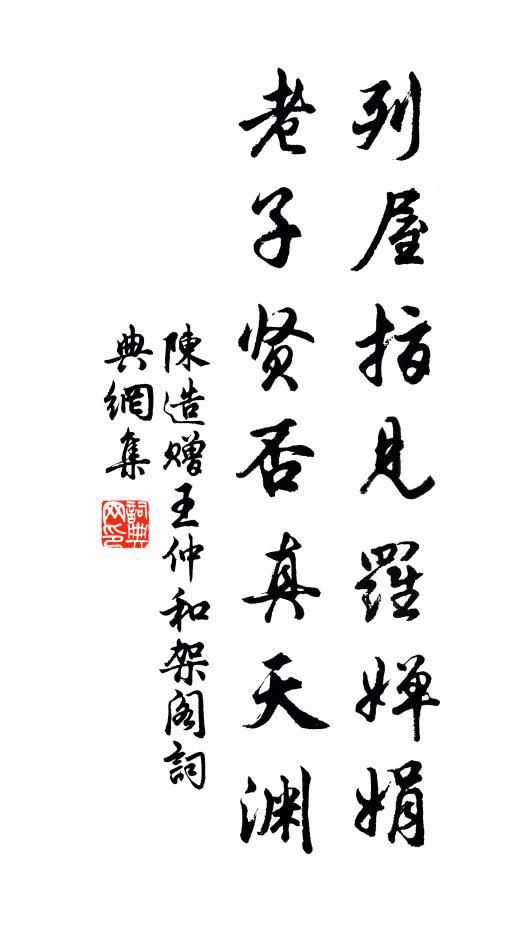 列屋指見羅嬋娟
老子贤否真天渊
陳造赠王仲和架阁詞
典網集
詞典
网印